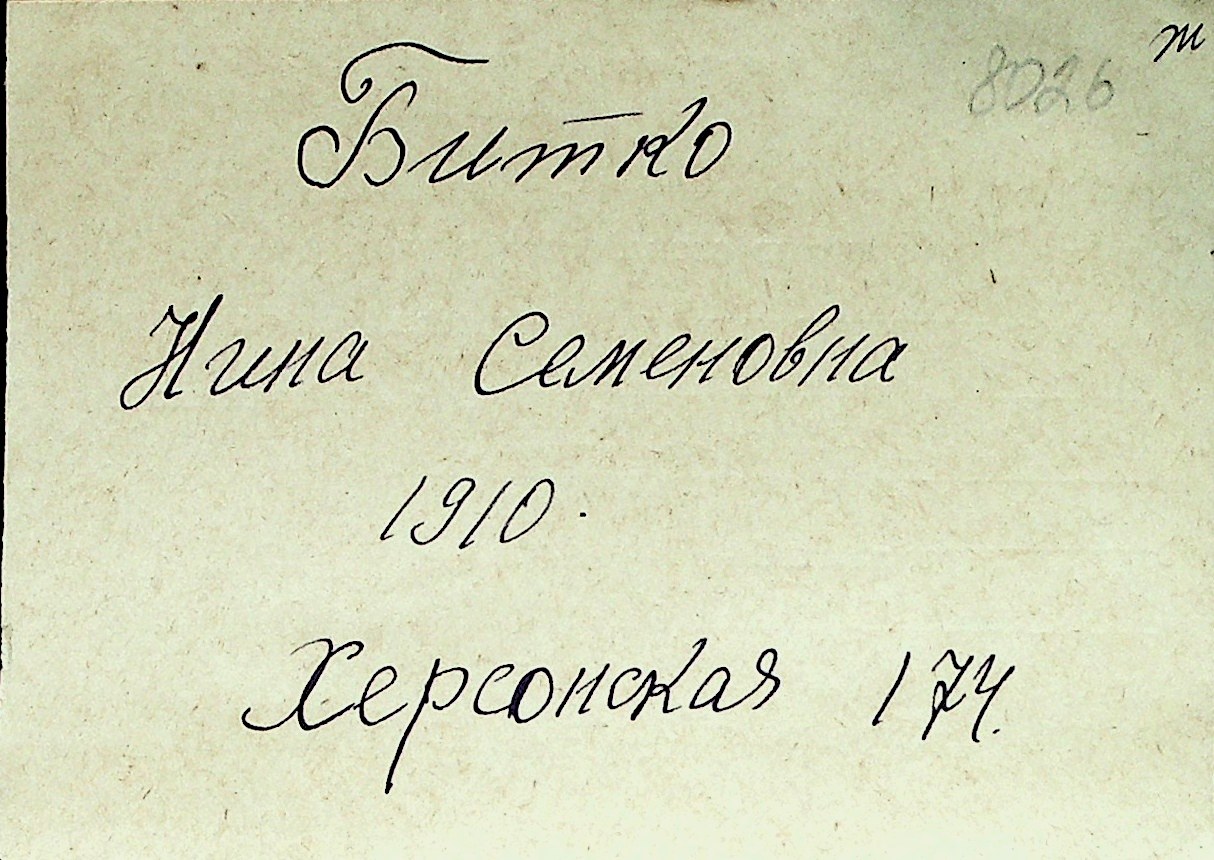 8026 т
Битко
Нина Семеновна
1910.
Херсонская 174.